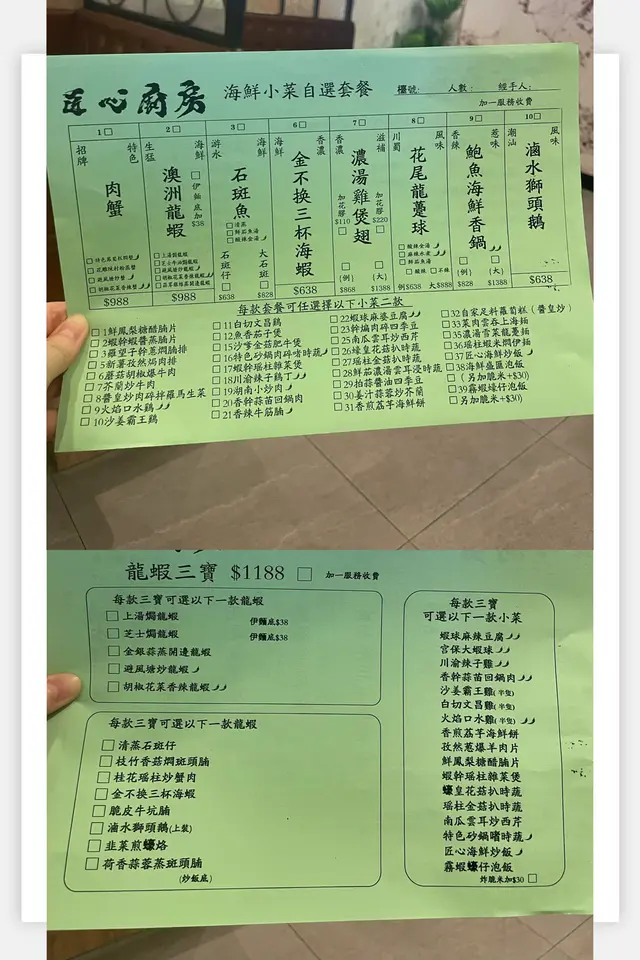 匠心廚房 海鮮小菜自選套餐 檯號: 人數: 經手人:
加一服務收費
1□ 招牌 特色 肉蟹 $988
2□ 生猛 海鮮 澳洲龍蝦 □伊麵底加$38
□上湯焗龍蝦
□芝士牛油焗龍蝦
□避風塘炒龍蝦
□胡椒花菜香辣龍蝦
$988
3□ 游水 海鮮 石斑魚
□清蒸
□鮮茄魚湯
□酸辣金湯
石斑仔 $638
大石斑 $828
6□ 海鮮 香濃 金不換三杯海蝦 $638
7□ 香濃 滋補 濃湯雞煲翅
加花膠$110□
加花膠$220□
(例) $868
(大) $1388
8□ 川蜀 風味 花尾龍躉球
□酸辣金湯
□麻辣水煮
□鮮茄魚湯
□酸辣 □不辣
(例) $638
(大) $888
9□ 香辣 惹味 鮑魚海鮮香鍋
□(例) $828
□(大) $1388
10□ 潮汕 風味 滷水獅頭鵝 $638
每款套餐可任選擇以下小菜二款
□1鮮鳳梨糖醋腩片
□2蝦幹蝦醬蒸腩片
□3羅望子幹蔥燜腩排
□5新薯孜然焗肉排
□6蘑菇胡椒爆牛肉
□7芥蘭炒牛肉
□8醬皇炒肉碎拌羅馬生菜
□9火焰口水鷄
□10沙姜霸王鷄
□11白切文昌鷄
□12魚香茄子煲
□15沙爹金菇肥牛煲
□16特色砂鍋肉碎啫時蔬
□17蝦幹瑤柱雜菜煲
□18川渝辣子鷄丁
□19湖南小炒肉
□20香幹蒜苗回鍋肉
□21香辣牛筋腩
□22蝦球麻婆豆腐
□23幹煸肉碎四季豆
□25南瓜雲耳炒西芹
□26蠔皇花菇扒時蔬
□27瑤柱金菇扒時蔬
□28鮮茄濃湯雲耳浸時蔬
□29拍蒜醬油四季豆
□30姜汁蒜蓉炒芥蘭
□31香煎荔芋海鮮餅
□32自家足料蘿蔔糕（醬皇炒）
□33菜肉雲吞上海麵
□35濃湯雪菜龍躉麵
□36瑤柱蝦米燜伊麵
□37匠心海鮮炒飯
□38海鮮盛匯泡飯
□（另加脆米+$30）
□39霧蝦蠔仔泡飯
□另加脆米+$30)
龍蝦三寶 $1188 □ 加一服務收費
每款三寶可選以下一款龍蝦
□上湯焗龍蝦 伊麵底$38
□芝士焗龍蝦 伊麵底$38
□金銀蒜蒸開邊龍蝦
□避風塘炒龍蝦
□胡椒花菜香辣龍蝦
每款三寶可選以下一款龍蝦
□清蒸石斑仔
□枝竹香菇燜斑頭腩
□桂花瑤柱炒蟹肉
□金不換三杯海蝦
□脆皮牛坑腩
□滷水獅頭鵝(上裝)
□韭菜煎蠔烙
□荷香蒜蓉蒸斑頭腩
(炒飯底)
每款三寶
可選以下一款小菜
蝦球麻辣豆腐
宮保大蝦球
川渝辣子雞
香幹蒜苗回鍋肉
沙姜霸王雞(半隻)
白切文昌雞(半隻)
火焰口水雞(半隻)
香煎荔芋海鮮餅
孜然蔥爆羊肉片
鮮鳳梨糖醋腩片
蝦幹瑤柱雜菜煲
蠔皇花菇扒時蔬
瑤柱金菇扒時蔬
南瓜雲耳炒西芹
特色砂鍋啫時蔬
匠心海鮮炒飯
霧蝦蠔仔泡飯
炸脆米加$30 □